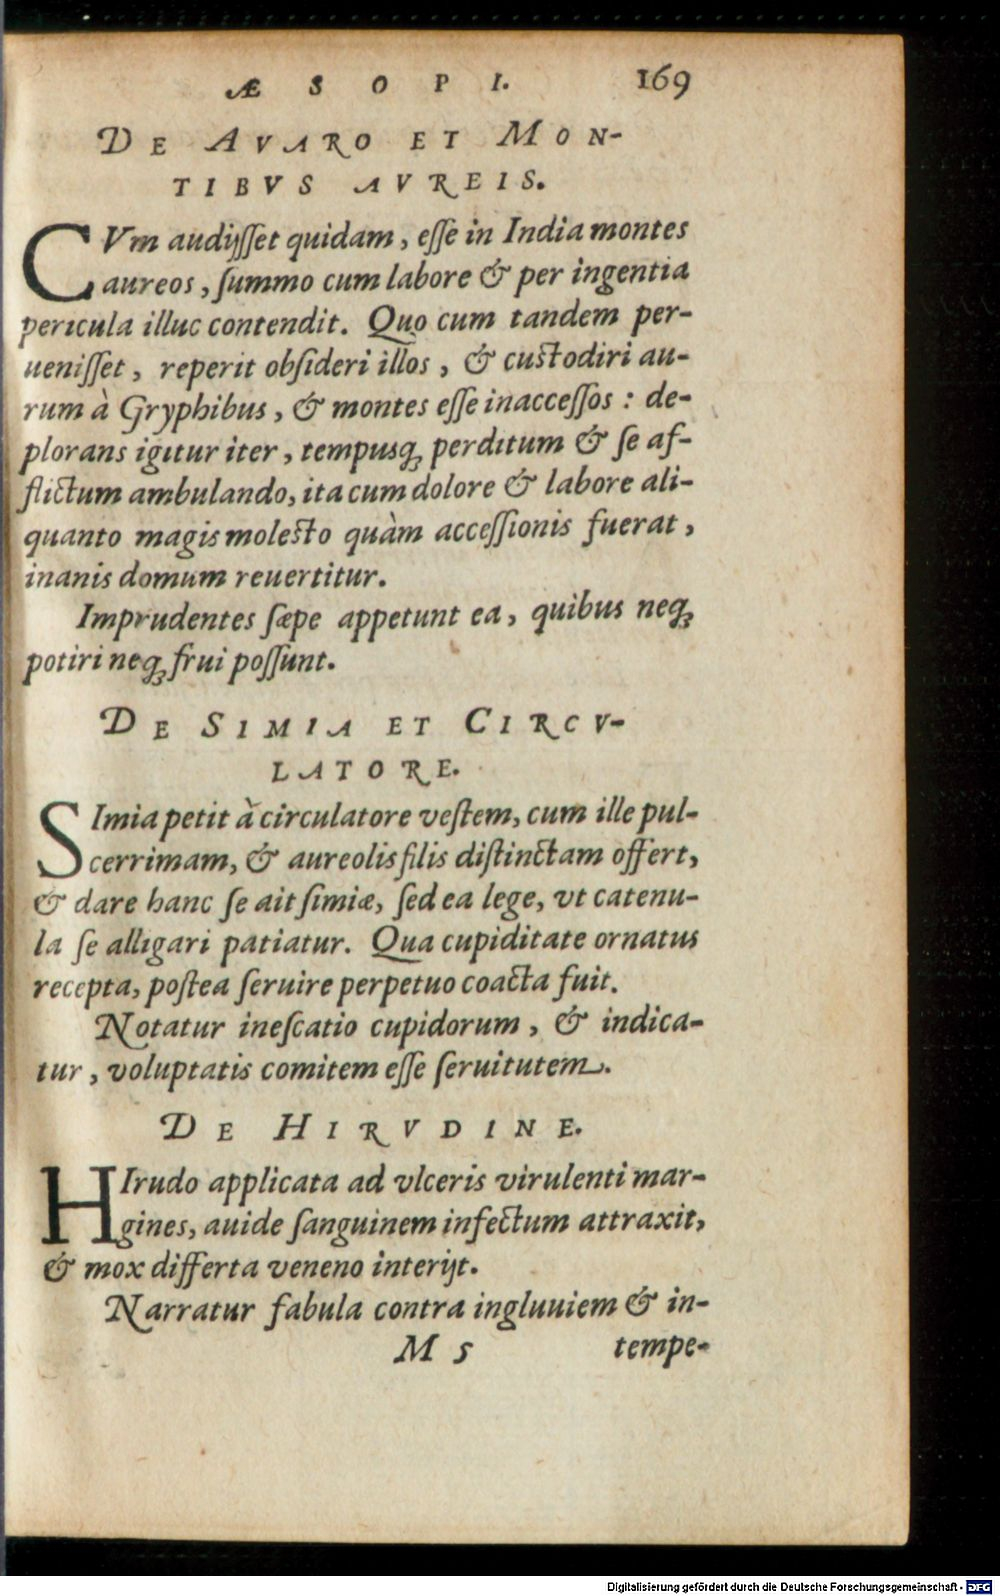 ÆSOPI. 169
DE AVARO ET MON-
TIBVS AVREIS.
CVm audijſſet quidam, eſſe in India montes
aureos, ſummo cum labore & per ingentia
pericula illuc contendit. Quo cum tandem per-
ueniſſet, reperit obſideri illos, & cuſtodiri au-
rum à Gryphibus, & montes eſſe inacceſſos: de-
plorans igitur iter, tempusq́ꝫ perditum & ſe af-
flictum ambulando, ita cum dolore & labore ali-
quanto magis moleſto quàm acceſſionis fuerat,
inanis domum reuertitur.
Imprudentes ſæpe appetunt ea, quibus neqꝫ
potiri neqꝫ frui poſſunt.
DE SIMIA ET CIRCV-
LATORE.
SImia petit à circulatore veſtem, cum ille pul-
cerrimam, & aureolis filis diſtinctam offert,
& dare hanc ſe ait ſimiæ, ſed ea lege, vt catenu-
la ſe alligari patiatur. Qua cupiditate ornatus
recepta, poſtea ſeruire perpetuo coacta fuit.
Notatur ineſcatio cupidorum, & indica-
tur, voluptatis comitem eſſe ſeruitutem.
DE HIRVDINE.
HIrudo applicata ad vlceris virulenti mar-
gines, auide ſanguinem infectum attraxit,
& mox differta veneno interijt.
Narratur fabula contra ingluuiem & in-
M 5 tempe-
Digitalisierung gefördert durch die Deutsche Forschungsgemeinschaft - DFG